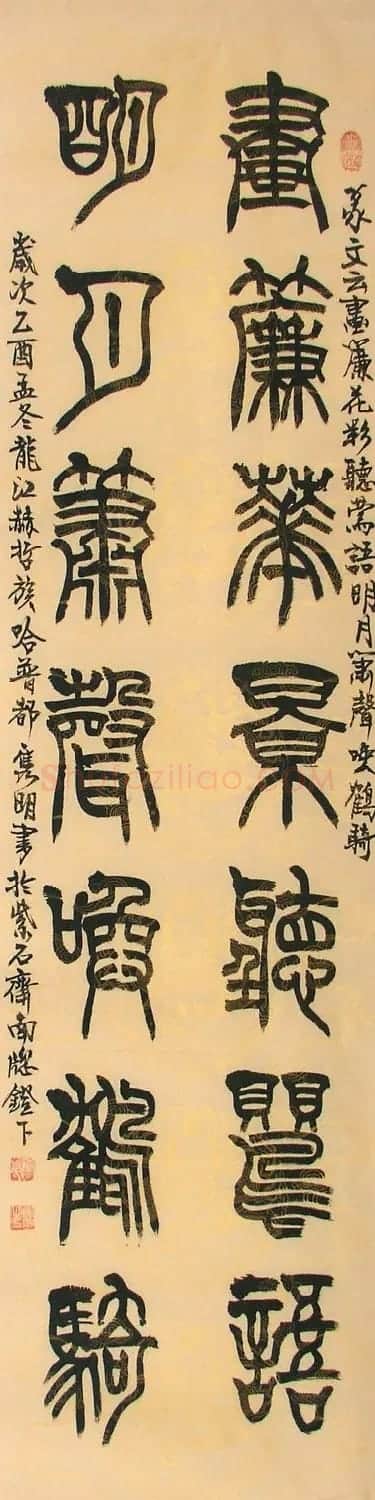 篆文云畫簾花影聽鶯語明月簫聲喚鶴騎
畫簾華景聽鶯語
明月簫聲喚鶴騎
歲次乙酉孟冬龍江赫哲族哈普都隽明書於紫石齋南窗鐙下